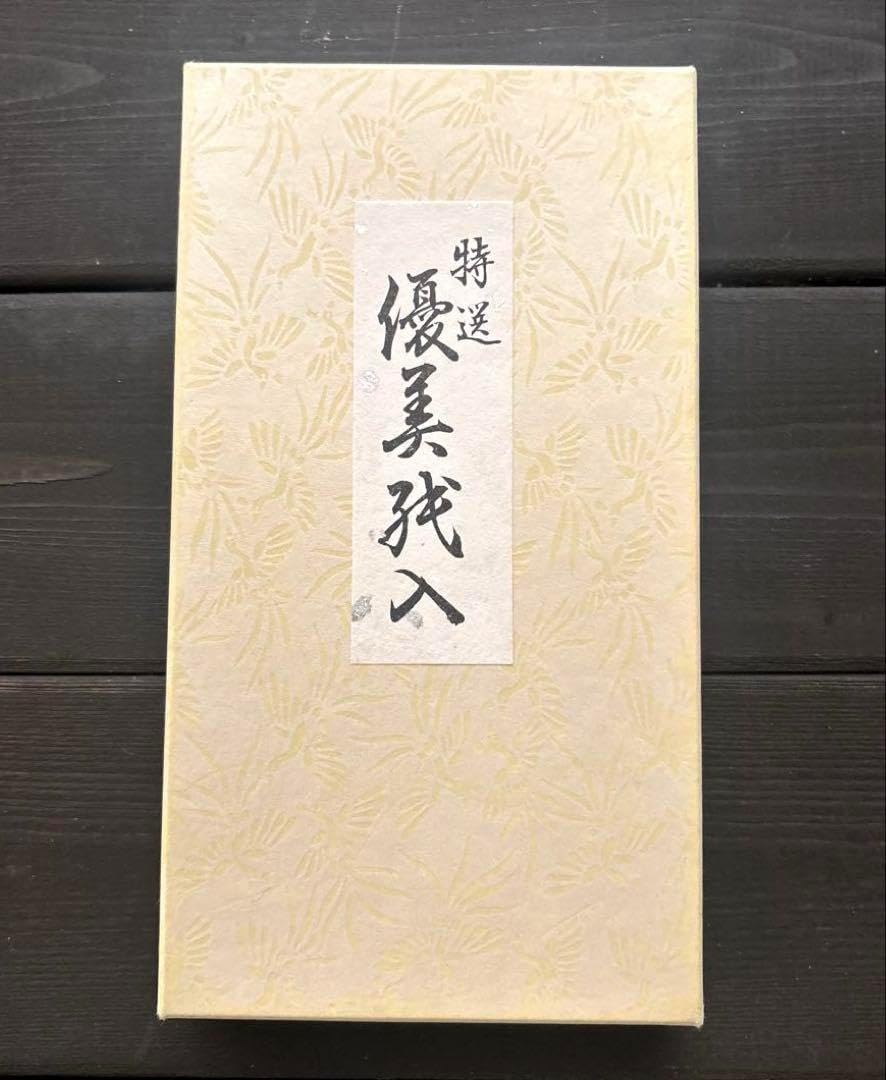 特選
優美紙入